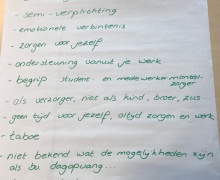 - semi-verplichting
- emotionele verbintenis
- zorgen voor jezelf
- ondersteuning vanuit je werk
- begrip student- en medewerker mantel-
zorger
- als verzorger, niet als kind, broer, zus
- geen tijd voor jezelf, altijd zorgen en werk
- taboe
- niet bekend wat de mogelijkheden zijn
als bv dagopvang...